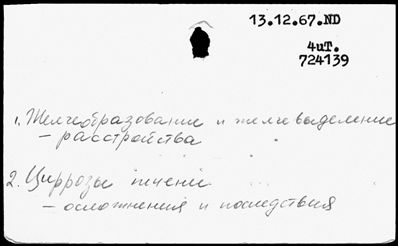 13.12.67.ND
4uT.
724139
1. Желчеобразование и желчевыделение
– расстройства
2. Циррозы печени
– осложнения и последствия